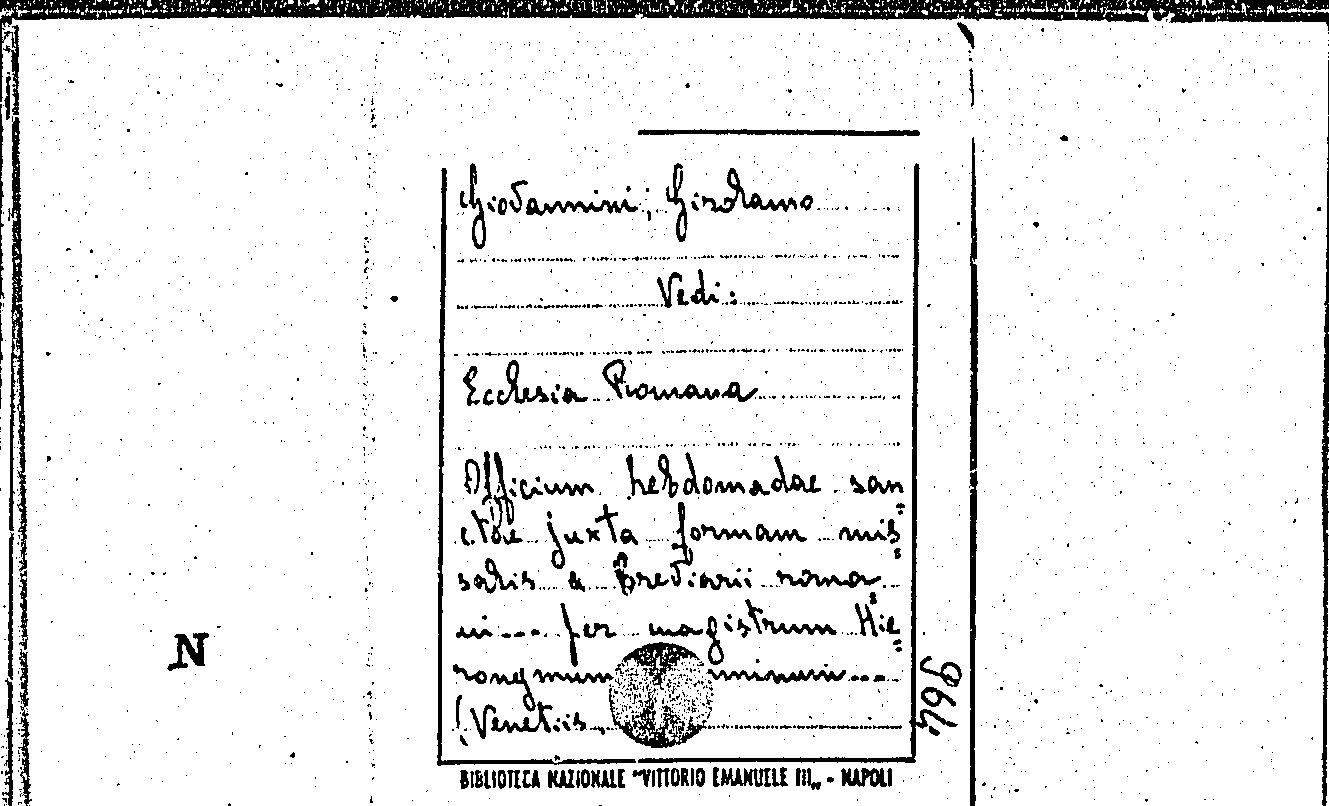 Giovannini, Girolamo
Vedi:
Ecclesia Romana
Officium hebdomadae san=
ctae juxta formam mis=
salis & Breviarii roma=
ni... per magistrum Hie=
ronymum
(Venetiis,
964
N
BIBLIOTECA NAZIONALE "VITTORIO EMANUELE III„ - NAPOLI